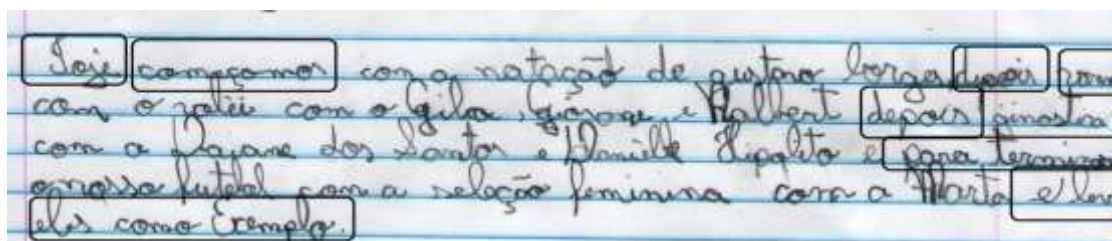 Hoje começamos com a natação de gustavo borges depois
com o volei com o Giba, Giovane e Nalbert depois ginastica
com a Dayane dos Santos e Daniele Hipolito e para termina
o nosso futebol com a seleção feminina com a Marta e
eles como Exemplo.